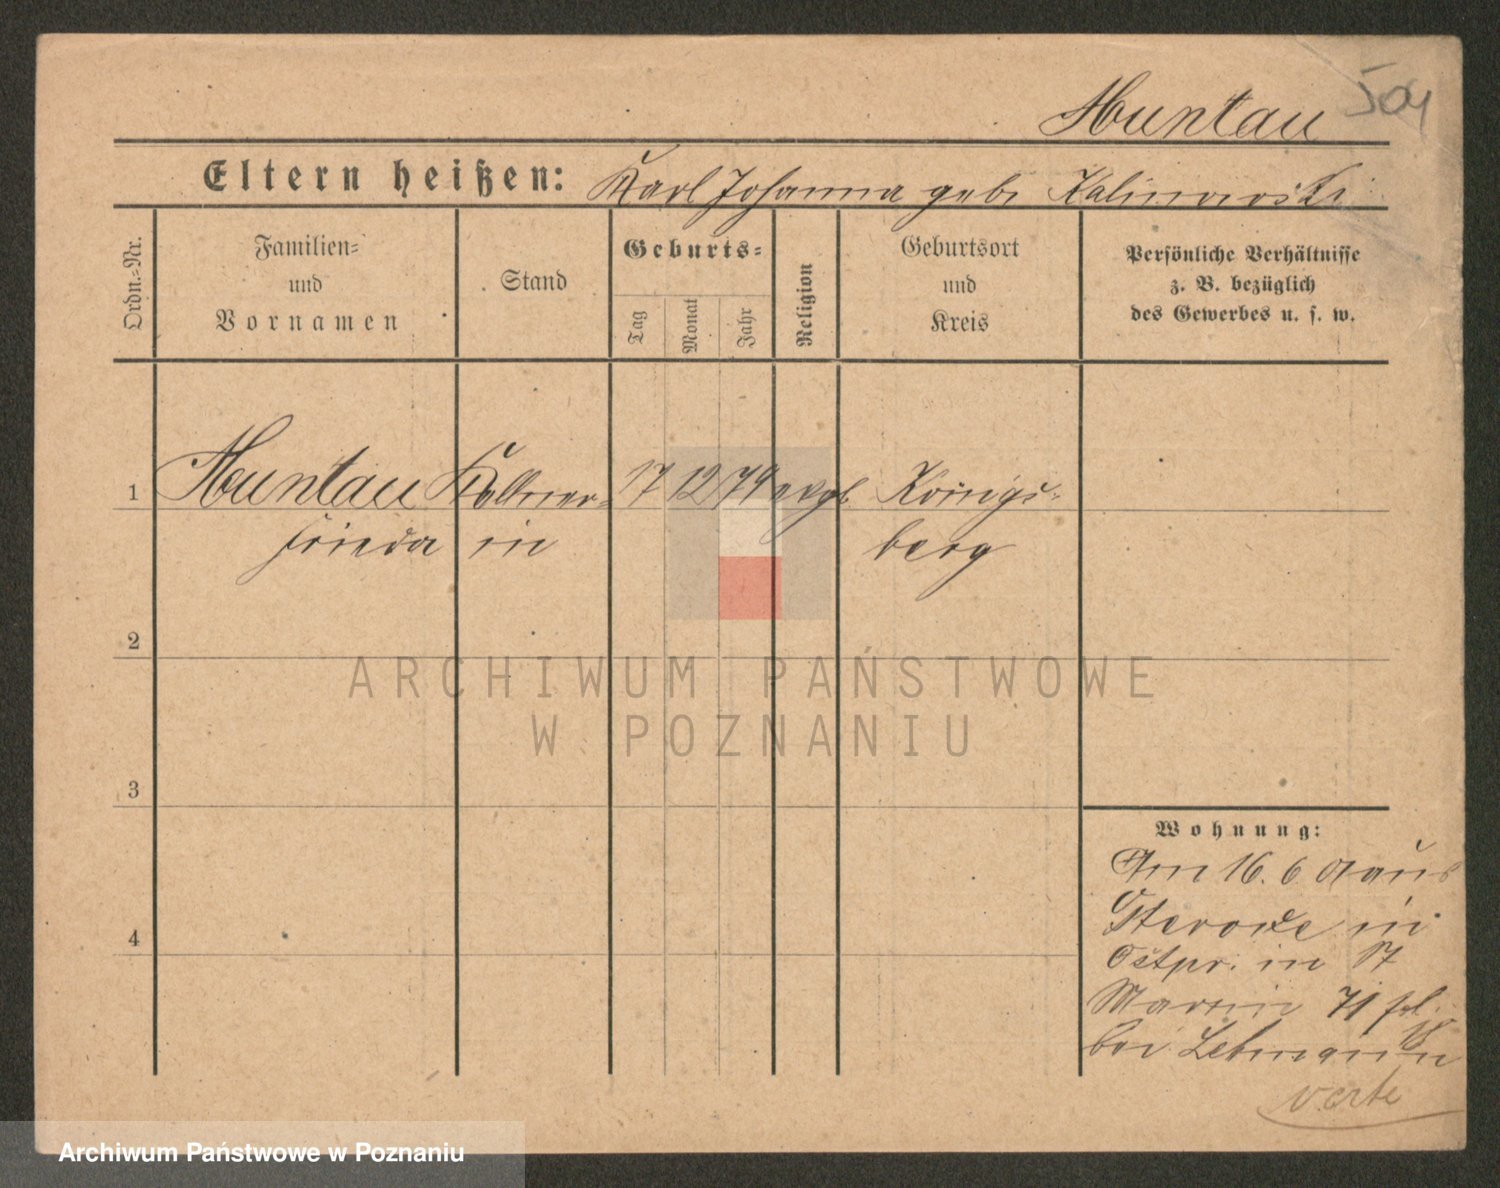 504
Huntau
Eltern heißen: Karl Johanna geb. Kalinowski
Ordn.=Nr.
Familien=
und
Vornamen
Stand
Geburts=
Tag
Monat
Jahr
Religion
Geburtsort
und
Kreis
Persönliche Verhältnisse
z. B. bezüglich
des Gewerbes u. s. w.
1 Huntau Kellner= 17 12 79 evgl. Königs=
Frieda in berg
2
3
4
Wohnung:
Am 16. 6 01 aus
Osterode in
Ostpr. in St
Martin 71
bei Lehmann
verte
ARCHIWUM PAŃSTWOWE
W POZNANIU
Archiwum Państwowe w Poznaniu